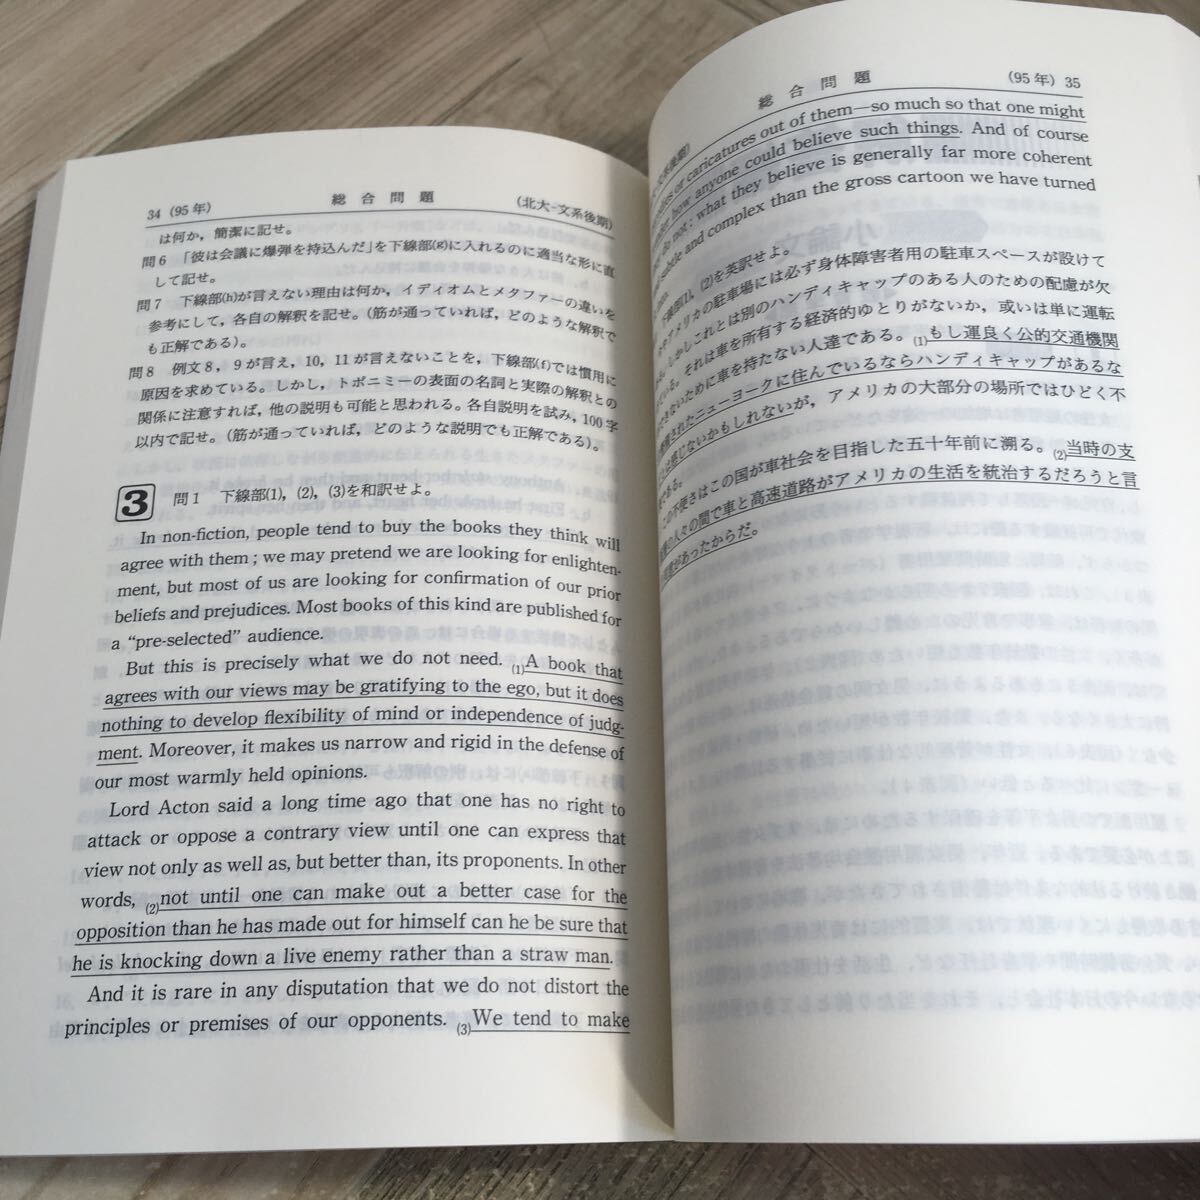 34 (95年)
総合問題
(北大-文系後期)
は何か，簡潔に記せ。
問6 「彼は会議に爆弾を持込んだ」を下線部(g)に入れるのに適当な形に直
して記せ。
問7 下線部(h)が言えない理由は何か，イディオムとメタファーの違いを
参考にして，各自の解釈を記せ。（筋が通っていれば，どのような解釈で
も正解である）。
問8 例文8，9が言え，10，11が言えないことを，下線部(f)では慣用に
原因を求めている。しかし，トポニミーの表面の名詞と実際の解釈との
関係に注意すれば，他の説明も可能と思われる。各自説明を試み，100字
以内で記せ。（筋が通っていれば，どのような説明でも正解である）。
3 問1 下線部(1)，(2)，(3)を和訳せよ。
In non-fiction, people tend to buy the books they think will
agree with them ; we may pretend we are looking for enlighten-
ment, but most of us are looking for confirmation of our prior
beliefs and prejudices. Most books of this kind are published for
a “pre-selected” audience.
But this is precisely what we do not need. (1)A book that
agrees with our views may be gratifying to the ego, but it does
nothing to develop flexibility of mind or independence of judg-
ment. Moreover, it makes us narrow and rigid in the defense of
our most warmly held opinions.
Lord Acton said a long time ago that one has no right to
attack or oppose a contrary view until one can express that
view not only as well as, but better than, its proponents. In other
words, (2)not until one can make out a better case for the
opposition than he has made out for himself can he be sure that
he is knocking down a live enemy rather than a straw man.
And it is rare in any disputation that we do not distort the
principles or premises of our opponents. (3)We tend to make
総合問題
(95年) 35
of caricatures out of them—so much so that one might
how anyone could believe such things. And of course
do not : what they believe is generally far more coherent
and complex than the gross cartoon we have turned
下線部(1)，(2)を英訳せよ。
アメリカの駐車場には必ず身体障害者用の駐車スペースが設けて
しかしこれとは別のハンディキャップのある人のための配慮が欠
いる。それは車を所有する経済的ゆとりがないか，或いは単に運転
できないために車を持たない人達である。(1)もし運良く公的交通機関
されたニューヨークに住んでいるならハンディキャップがあるな
は感じないかもしれないが，アメリカの大部分の場所ではひどく不
である。
この不便さはこの国が車社会を目指した五十年前に溯る。(2)当時の支
の人々の間で車と高速道路がアメリカの生活を統治するだろうと言
があったからだ。